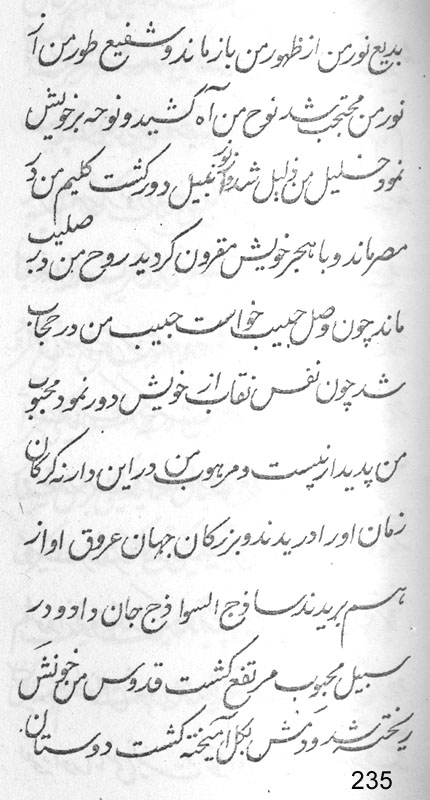 بدیع نور من از ظهور من باز ماند و شفیع طور من از
نور من محتجب شد نوح من آه کشید و نوحه بر خویش
نمود خلیل من ذلیل شد و از نور نبیل دور کشت کلیم من در
مصر ماند و با هجر خویش مقرون کردید روح من بر صلیب
ماند چون وصل حبیب خواست حبیب من در حجاب
شد چون نفس نقاب از خویش دور نمود محبوب
من پدیدار نیست و مرهوب من در این دار نه کرکان
زمان او را دریدند و بزرکان جهان عروق او از
هم بریدند ساذج السواذج جان داد و در
سبیل محبوب مرتفع کشت قدوس من خونش
ریخته شد و دمش بکل آمیخته کشت دوستان
235